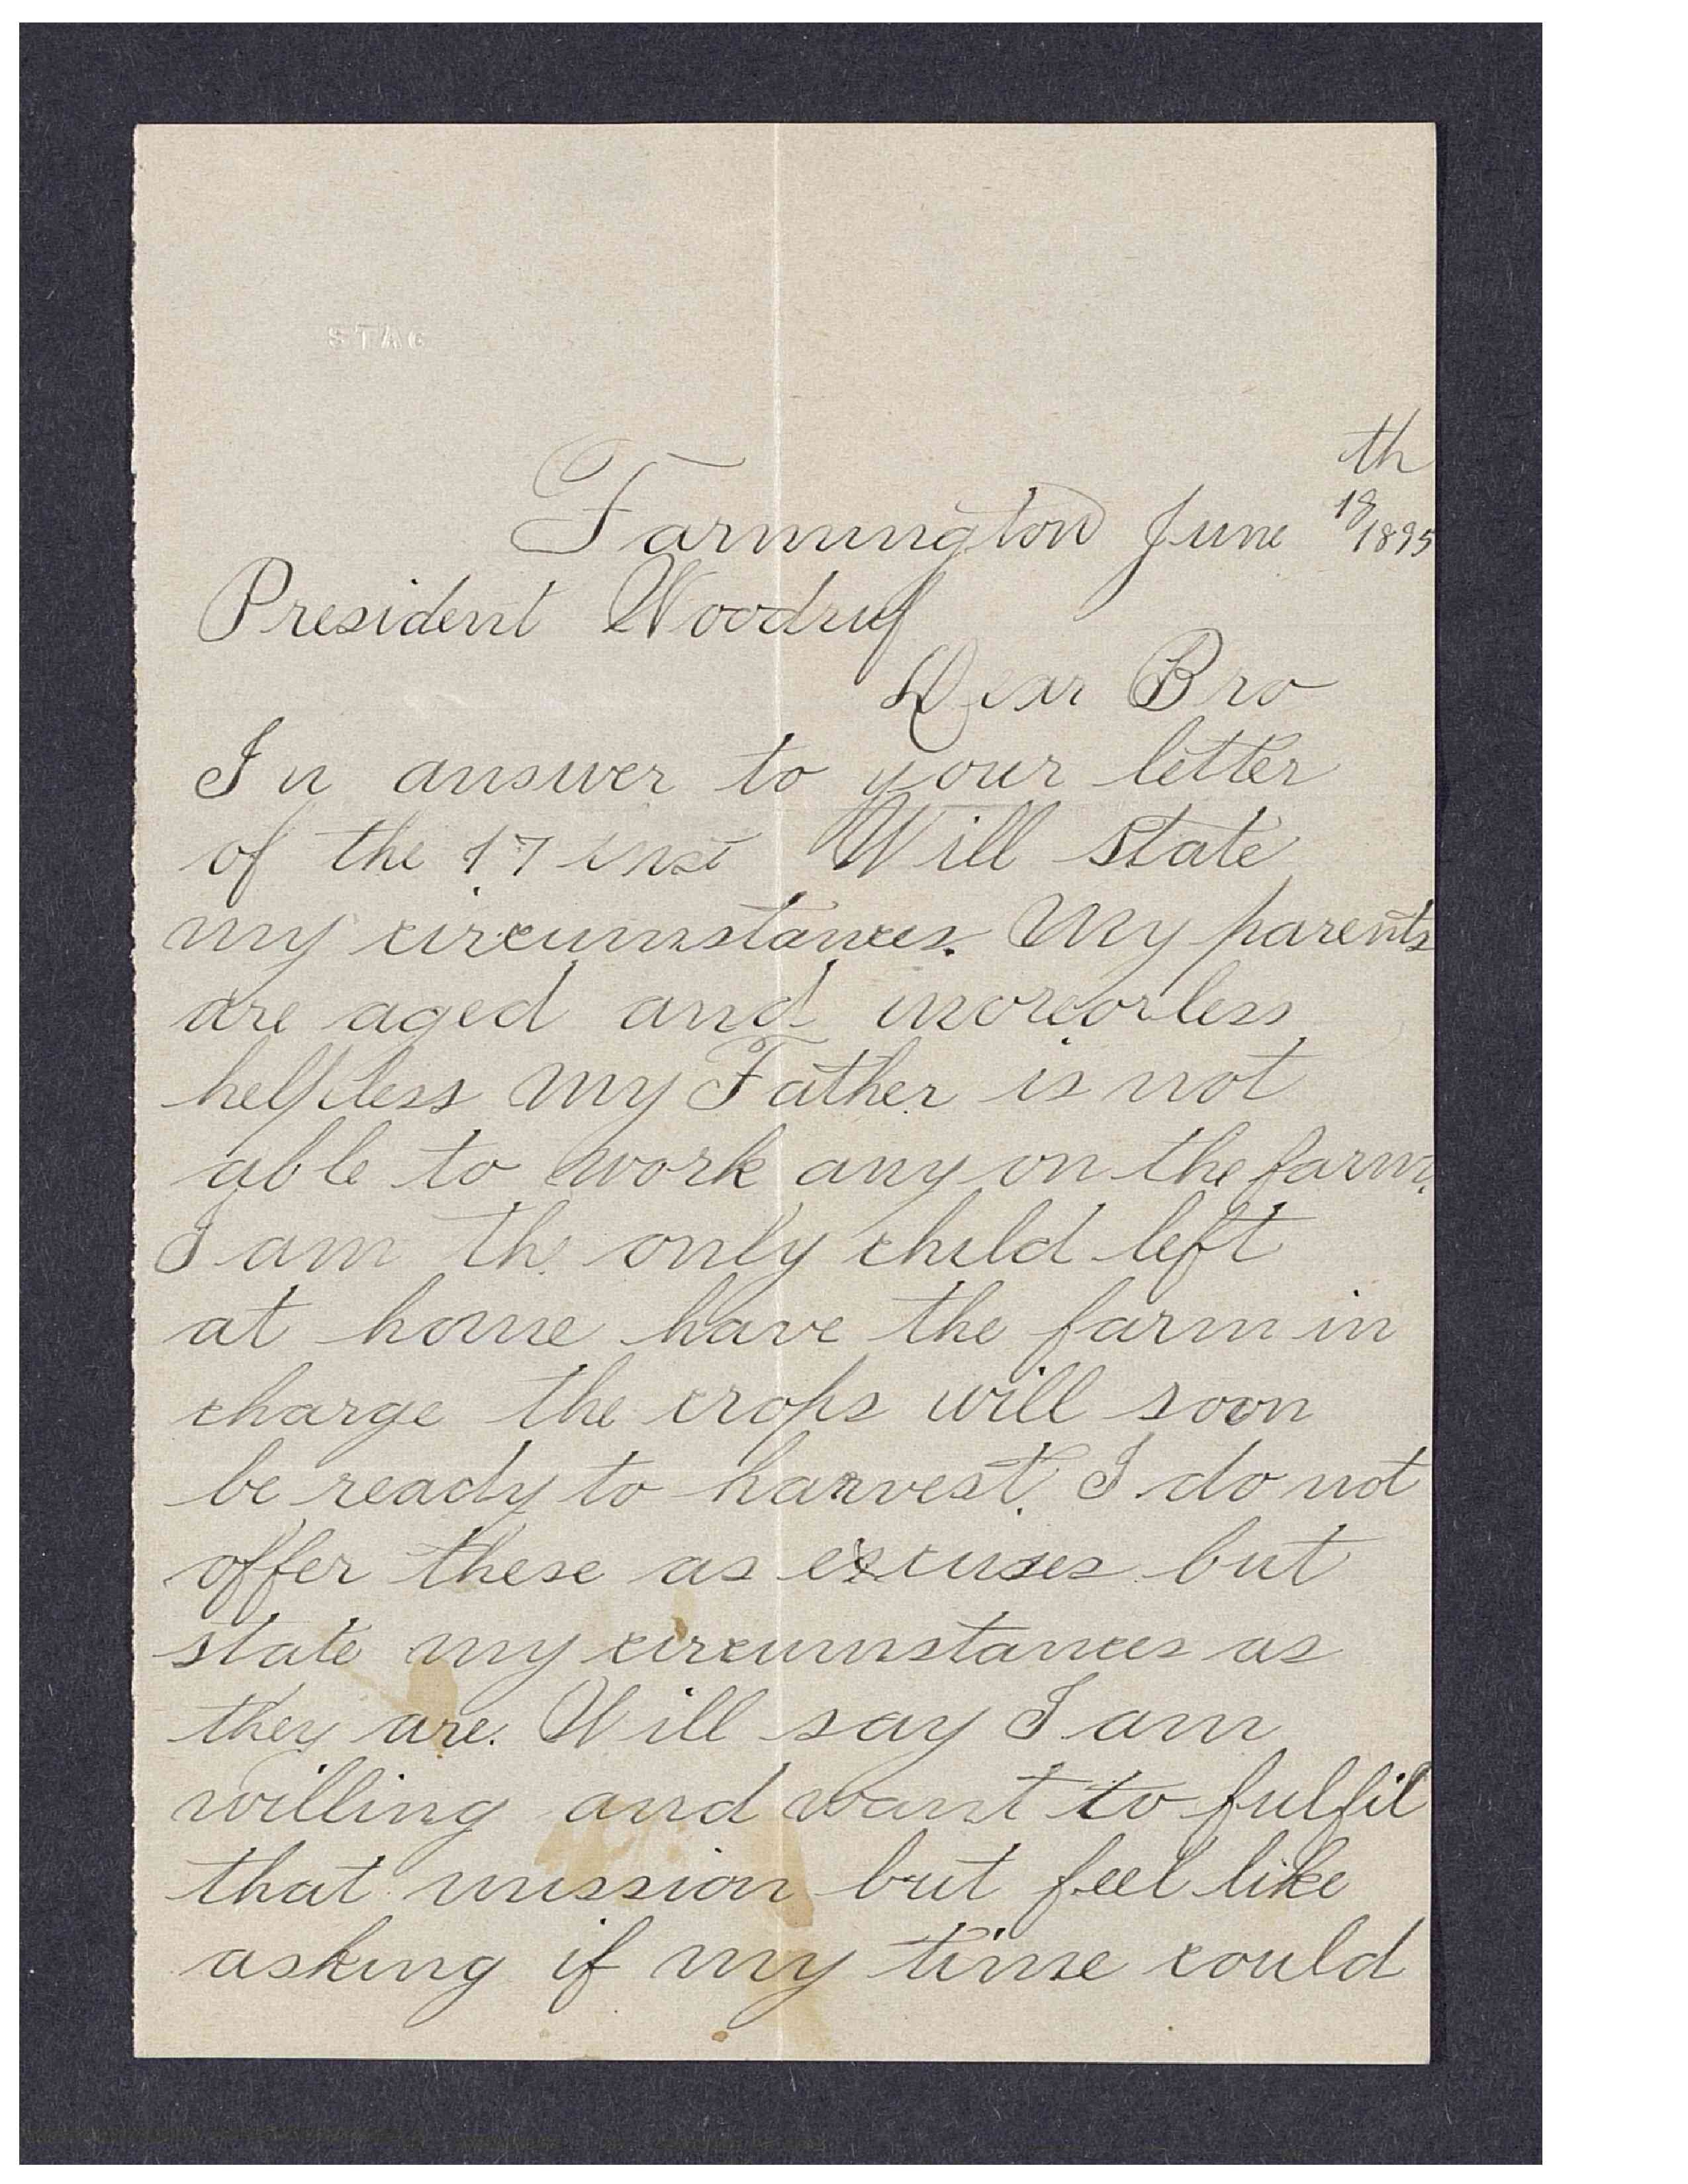 STAG
th
Farmington June 18/1895
President Woodruf
Dear Bro
In answer to your letter
of the 17 inst Will state
my circumstances. My parents
are aged and moreorless
helpless My Father is not
able to work any on the farm.
I am the only child left
at home have the farm in
charge the crops will soon
be ready to harvest. I do not
offer these as excuses but
state my circumstances as
they are. Will say I am
willing and want to fulfil
that mission but feel like
asking if my time could